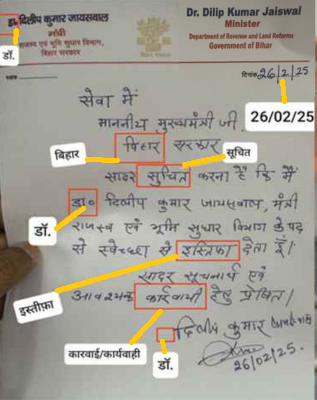 डा० दिलीप कुमार जायसवाल
मंत्री
राजस्व एवं भूमि सुधार विभाग,
बिहार सरकार
डॉ.
Dr. Dilip Kumar Jaiswal
Minister
Department of Revenue and Land Reforms
Government of Bihar
दिनांक 26/2/25
26/02/25
सेवा में
माननीय मुख्यमंत्री जी
बिहार सरकार
बिहार
सूचित
सादर सुचित करना है कि मैं
डा० दिलीप कुमार जायसवाल, मंत्री
डॉ.
राजस्व एवं भूमि सुधार विभाग के पद
से स्वेच्छा से इस्तिफा देता हूँ।
इस्तीफ़ा
सादर सूचनार्थ एवं
आवश्यक कार्रवायी हेतु प्रेषित।
कारवाई/कार्यवाही
डॉ.
दिलीप कुमार जायसवाल
26/02/25.